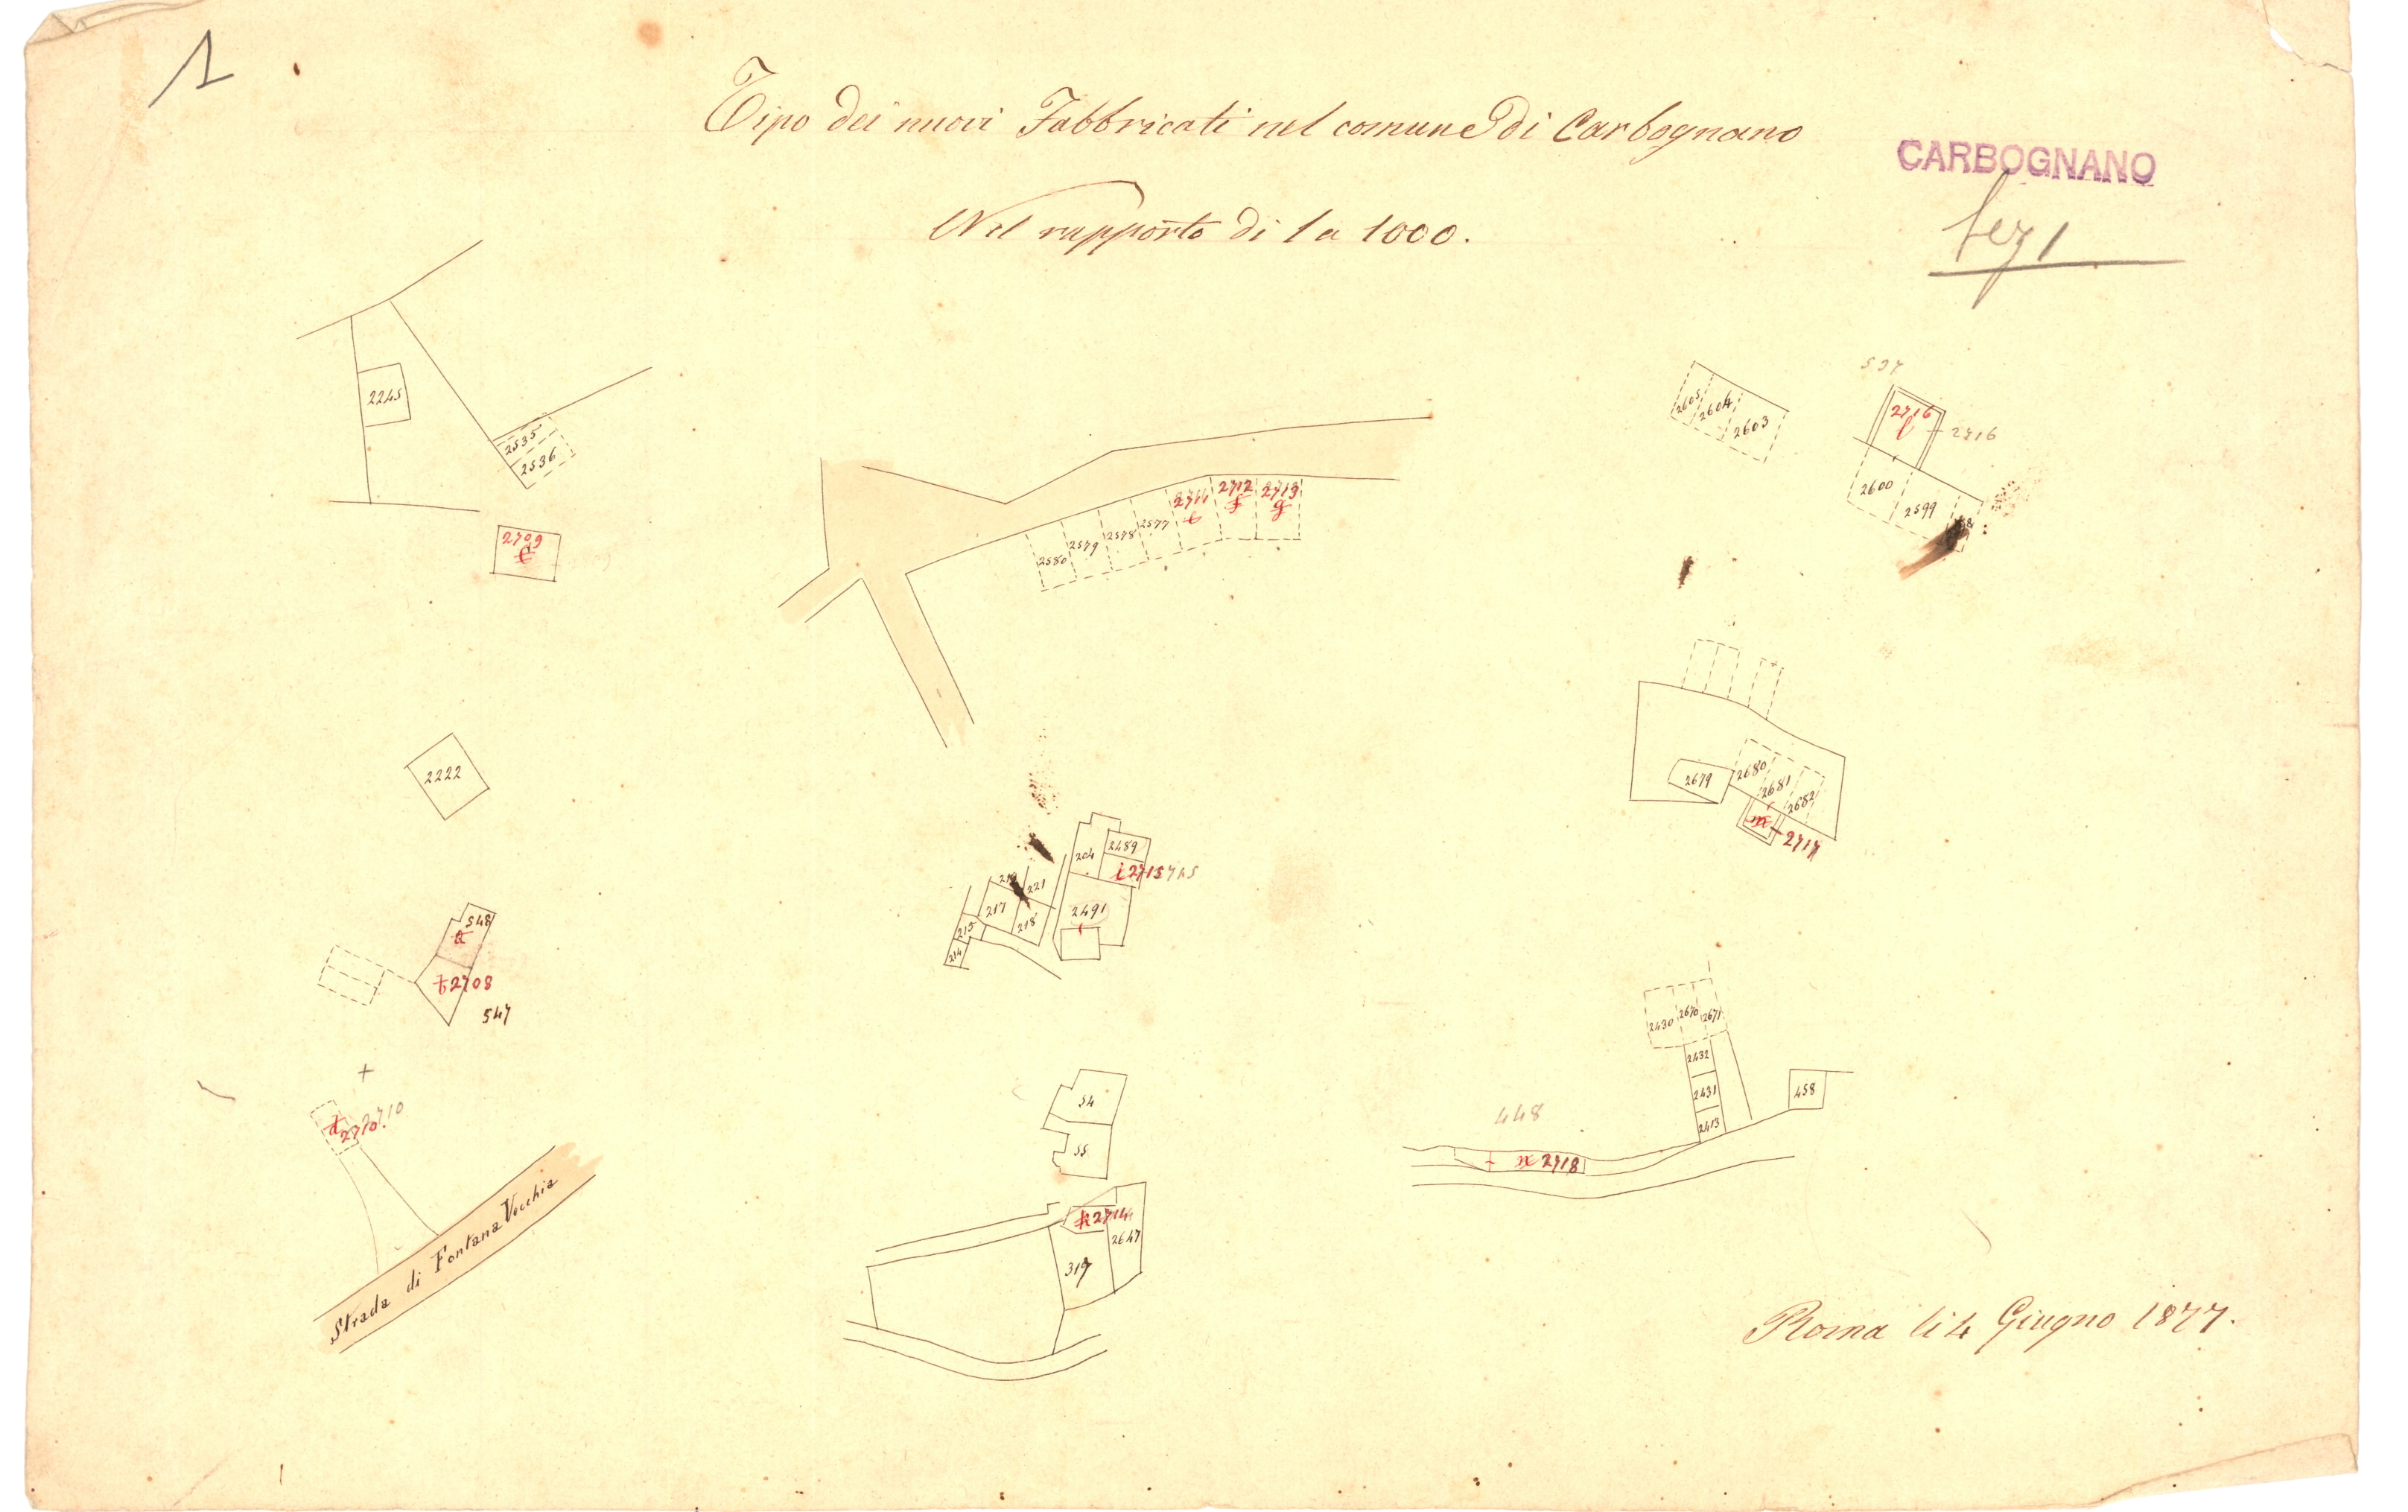 1
Tipo dei nuovi Fabbricati nel comune di Carbognano
CARBOGNANO
Nel rapporto di 1 a 1000.
Sez 1
2245
2535
2536
2709
2580
2579
2578
2577
2711
2712
2713
g
2605
2604
2603
537
2716
l
2716
2600
2599
2222
2679
2680
2681
2682
m
2717
548
a
b 2708
547
204
2489
i 2715 715
221
217
218
215
214
2491
d 2710 710
Strada di Fontana Vecchia
54
55
h 2714
2647
319
2430
2670
2671
2432
2431
2413
458
448
2718
Roma li 4 Giugno 1877.